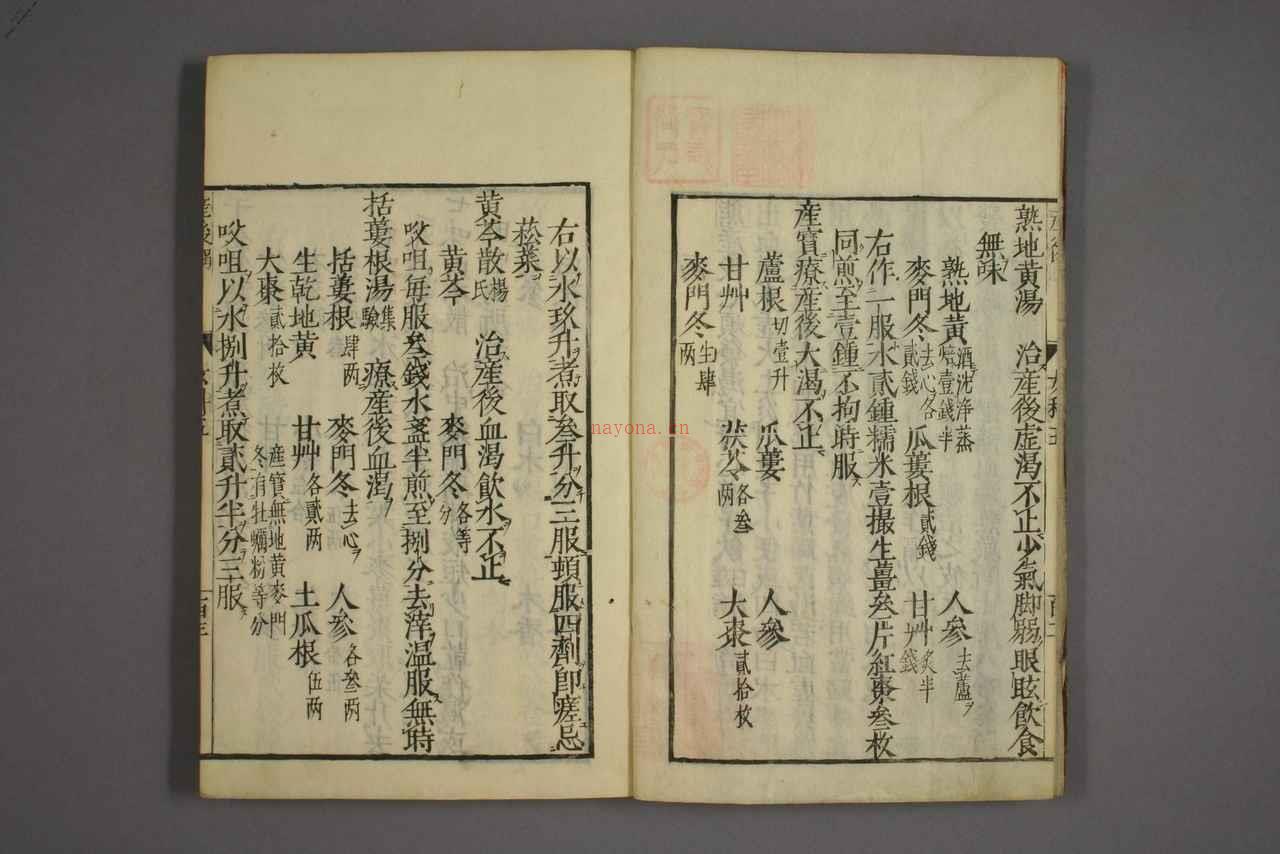 熟地黃湯　治産後虚渇不止少氣脚弱眼眩飲食
無味
熟地黃酒洗浄蒸焙壹錢半　人參去蘆
麥門冬去心各貳錢　瓜蔞根貳錢　甘艸炙半錢
右作一服水貳鍾糯米壹撮生薑叁片紅棗叁枚
同煎至壹鍾不拘時服
産寳療産後大渇不止
蘆根切壹升　瓜蔞　人參
甘艸　茯苓各叁两　大棗貳拾枚
麥門冬生肆两
右以水玖升煮取叁升分三服頓服四劑即瘥忌
菘菜
黃芩散楊氏　治産後血渇飲水不止
黃芩　麥門冬各等分
㕮咀毎服叁錢水盞半煎至捌分去滓温服無時
括蔞根湯集驗　療産後血渇
括蔞根肆两　麥門冬去心　人參各叁两
生乾地黃　甘艸各貳两　土瓜根伍两
大棗貳拾枚　産寳無地黃麥門冬有牡蠣粉等分
㕮咀以水捌升煮取貳升半分三服
nayona.cn